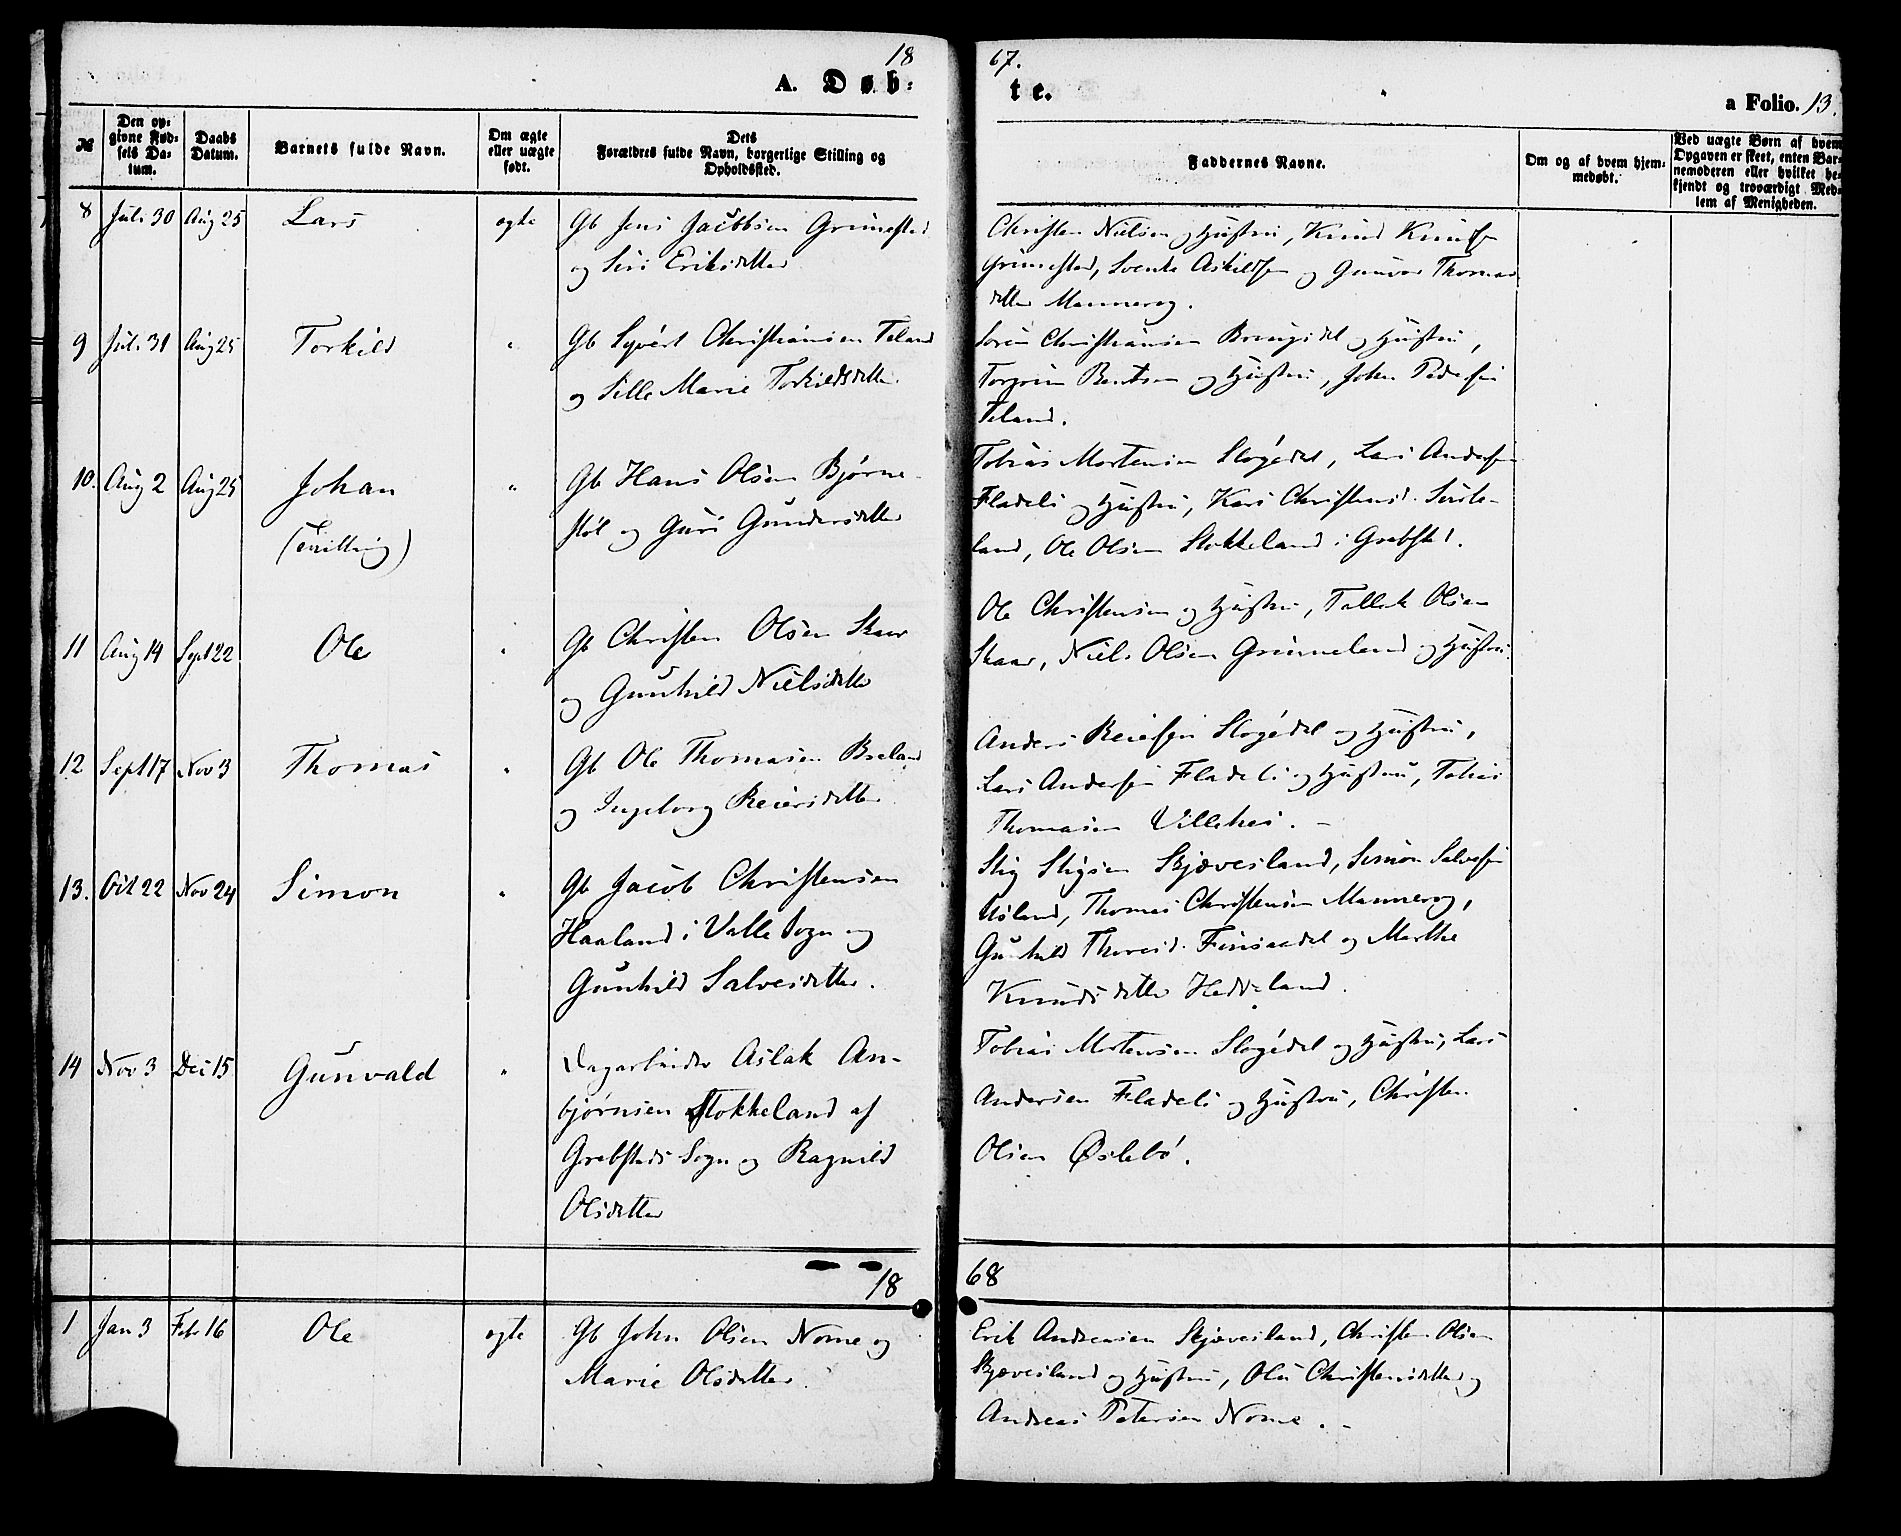 18
67.
A. Døb-
te.
a Folio. 13.
№
Den op-
givne Fød-
sels Da-
tum.
Daabs
Datum.
Barnets fulde Navn.
Om ægte
eller uægte
født.
Dets
Forældres fulde Navn, borgerlige Stilling og
Opholdssted.
Faddernes Navne.
Om og af hvem hjem-
medøbt.
Ved uægte Børn af hvem
Opgaven er skeet, enten Bar-
nemoderen eller hvilket be-
kjendt og troværdigt Med-
lem af Menigheden.
8 Juli 30 Aug 25 Lars ægte Gb Jens Jacobsen Grimestad
og Siri Eriksdatter
Christen Nielsen og Hustru, Knud Knudsen
Grimestad, Svenke Askildsen og Gunvor Thomas
datter Mannerog.
9 Juli 31 Aug 25 Torkild " Gb Syvert Christiansen Teland
og Sille Marie Torkildsdatter.
Søren Christiansen og Hustru,
Torgrim Bentsen og Hustru, John Pedersen
Teland.
10. Aug 2 Aug 25 Johan " Gb Hans Olsen Bjørne-
(Tvilling) støl og Guri Gundersdatter
Tobias Mortensen Slogedal, Lars Andersen
Fladeli og Hustru, Kari Christensd.
land, Ole Olsen Stokkeland i Grebsted.
11 Aug 14 Sept 22 Ole " Gb Christen Olsen Skaar
og Gunhild Nielsdatter
Ole Christensen og Hustru, Tallak Olsen
Skaar, Niels Olsen Grimeland og Hustru.
12 Sept 17 Nov 3 Thomas " Gb Ole Thomasen Breland
og Ingeborg Reiersdatter
Anders Reiersen Slogedal og Hustru,
Lars Andersen Fladeli og Hustru, Tobias
Thomasen
13. Oct 22 Nov 24 Simon " Gb Jacob Christensen
Haaland i Valle Sogn og
Gunhild Salvesdatter.
Stig Stigsen Skjævesland, Simon Salvesen
Usland, Thomas Christensen Mannerog,
Gunhild Thoresd. Finsaadal og Marthe
Knudsdatter Heddeland.
14 Nov 3 Dec 15 Gunvald " Dagarbeider Aslak An-
bjørnsen Stokkeland af
Grebsteds Sogn og Ragnild
Olsdatter
Tobias Mortensen Slogedal og Hustru, Lars
Andersen Fladeli og Hustru, Christen
Olsen Øslebø.
18
68
1 Jan 3 Febr 16 Ole ægte Gb John Olsen Nome og
Marie Olsdatter.
Erik Andreasen Skjævesland, Christen Olsen
Skjævesland og Hustru, Olea Christensdatter og
Andreas Petersen Nome.